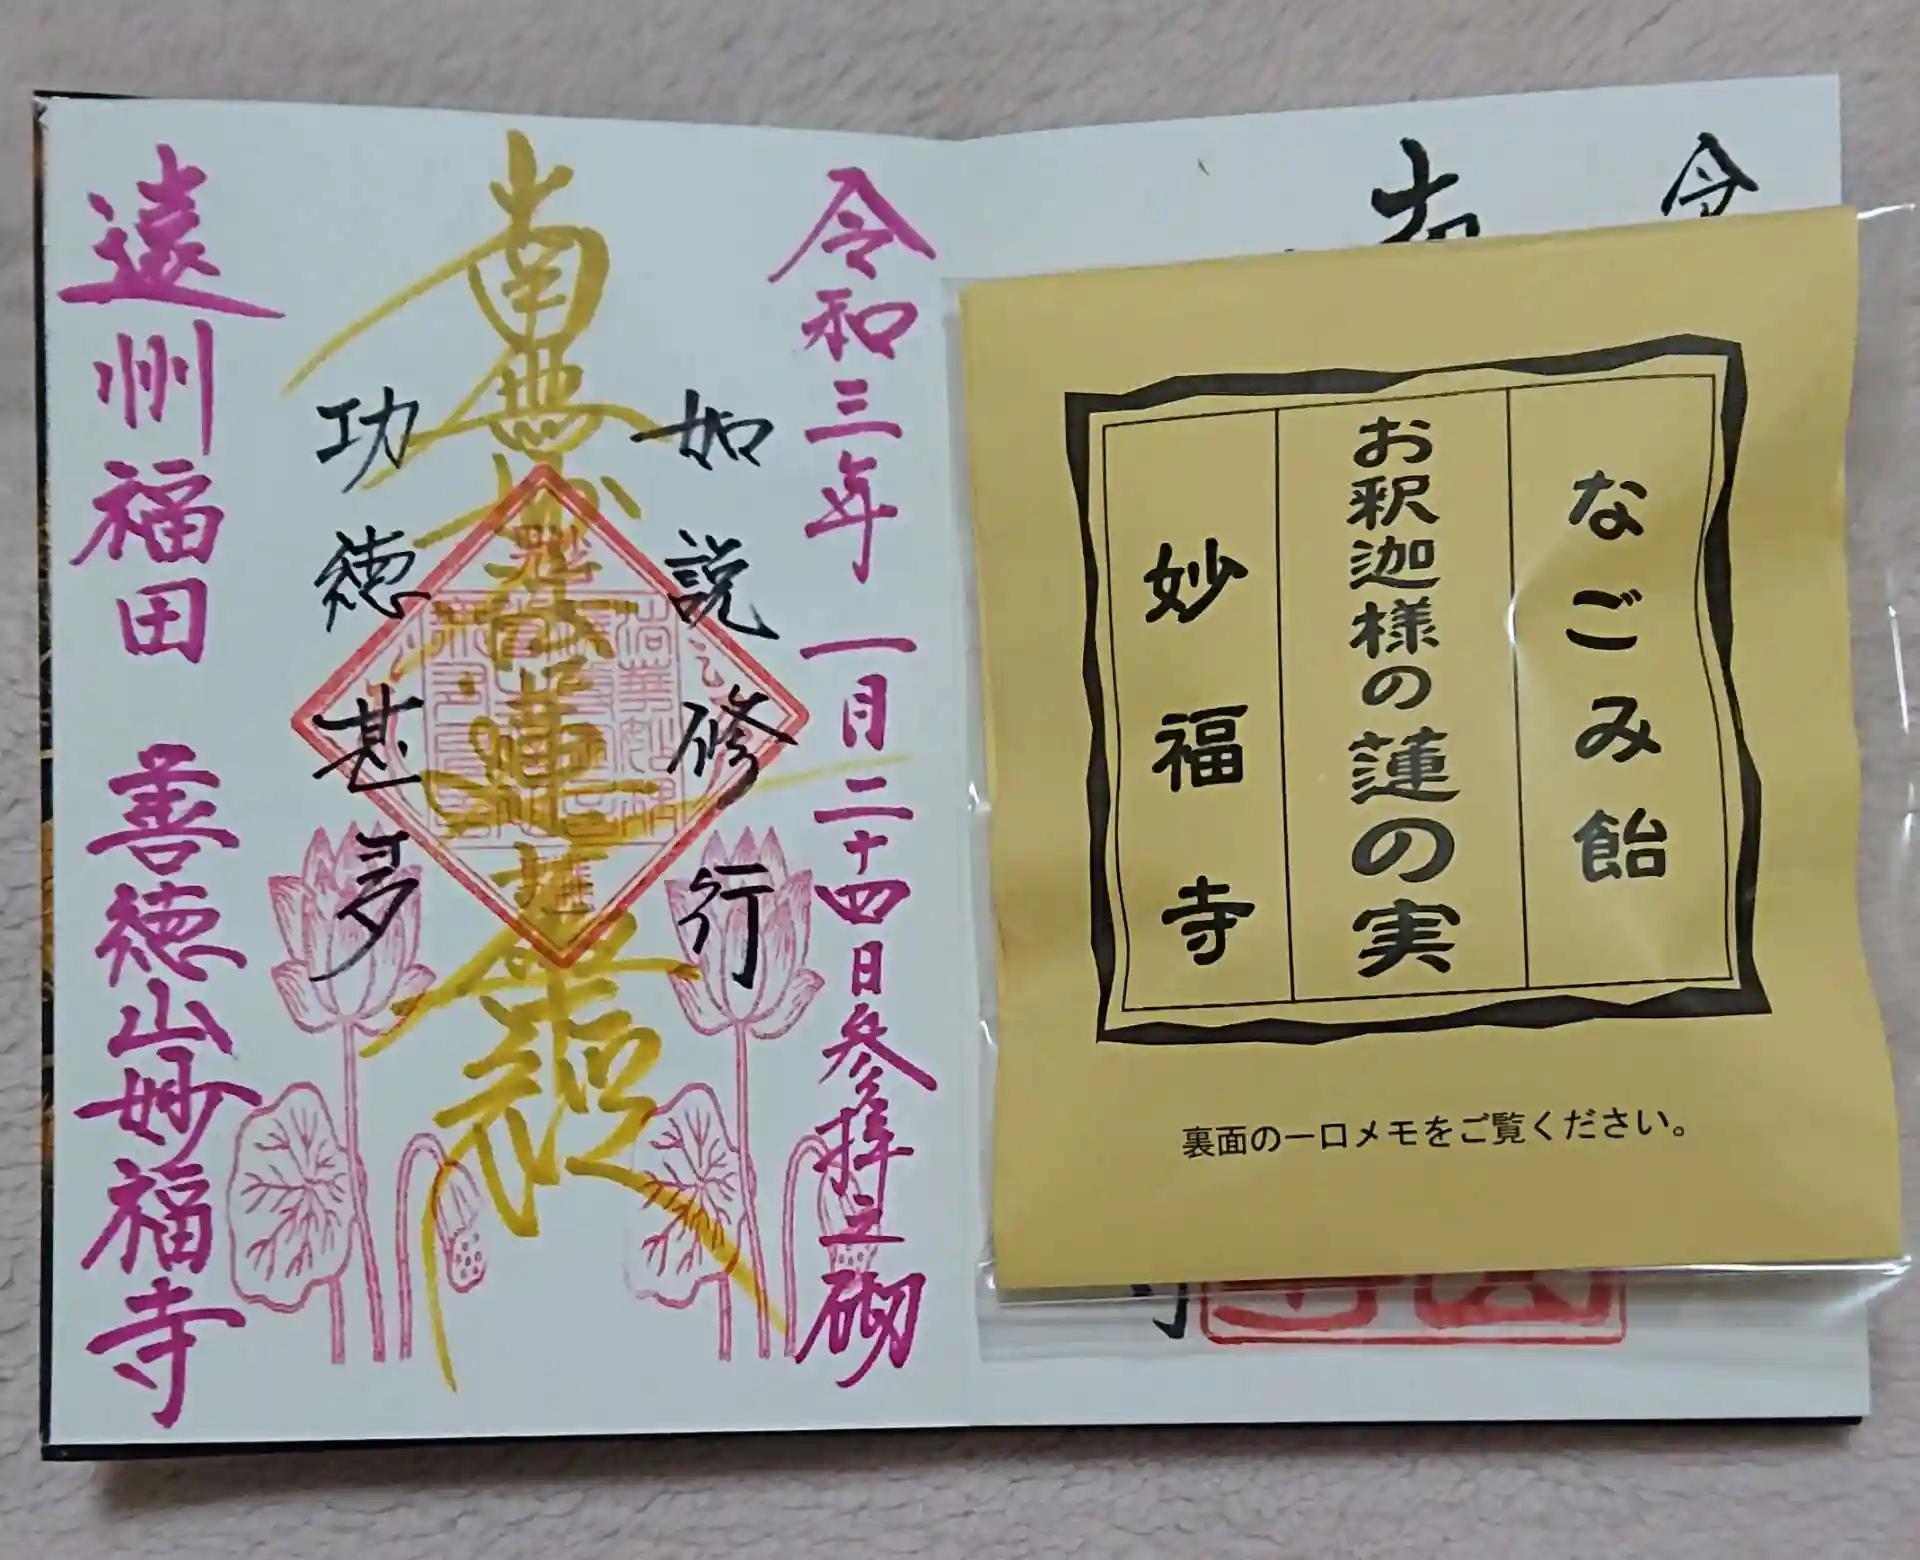 なごみ飴
お釈迦様の蓮の実
妙福寺
裏面の一口メモをご覧ください。
令和三年 一月二十四日参拝之砌
如説修行
南無妙法蓮華経
功徳甚多
遠州福田 善徳山妙福寺
令